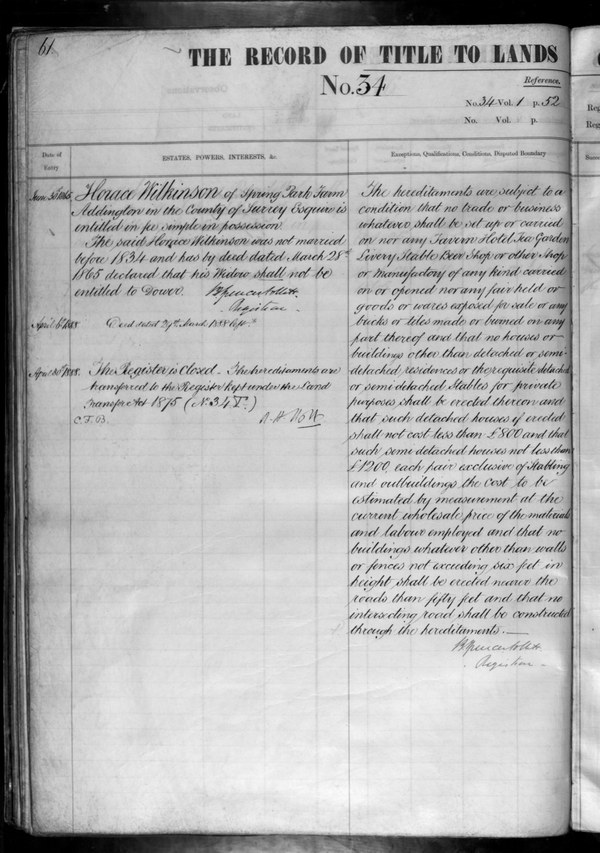 61
THE RECORD OF TITLE TO LANDS
No. 34
Reference.
No. 34 Vol. 1 p. 52
No. Vol. p.
Date of
Entry
ESTATES, POWERS, INTERESTS, &c.
Exceptions, Qualifications, Conditions, Disputed Boundary
1865 Horace Wilkinson of Spring Park Farm
Addington in the County of Surrey Esquire is
entitled in fee simple in possession.
The said Horace Wilkinson was not married
before 1834 and has by deed dated March 28th
1865 declared that his Widow shall not be
entitled to Dower.
Registrar
April 1888 Deed dated 29th March 1888
April 1888. The Register is Closed. The hereditaments are
transferred to the Register kept under the Land
Transfer Act 1875 (No. 34 )
C.F.B.
The hereditaments are subject to a
condition that no trade or business
whatever shall be set up or carried
on nor any Tavern Hotel Tea Garden
Livery Stable Beer Shop or other Shop
or Manufactory of any kind carried
on or opened nor any fair held or
goods or wares exposed for sale or any
bricks or tiles made or burned on any
part thereof and that no houses or
buildings other than detached or semi-
detached residences or the requisite detached
or semi detached Stables for private
purposes shall be erected thereon and
that such detached houses if erected
shall not cost less than £800 and that
such semi detached houses not less than
£1200 each pair exclusive of Stabling
and outbuildings the cost to be
estimated by measurement at the
current wholesale price of the materials
and labour employed and that no
buildings whatever other than walls
or fences not exceeding six feet in
height shall be erected nearer the
roads than fifty feet and that no
intersecting road shall be constructed
through the hereditaments.
Registrar
Reg
Reg